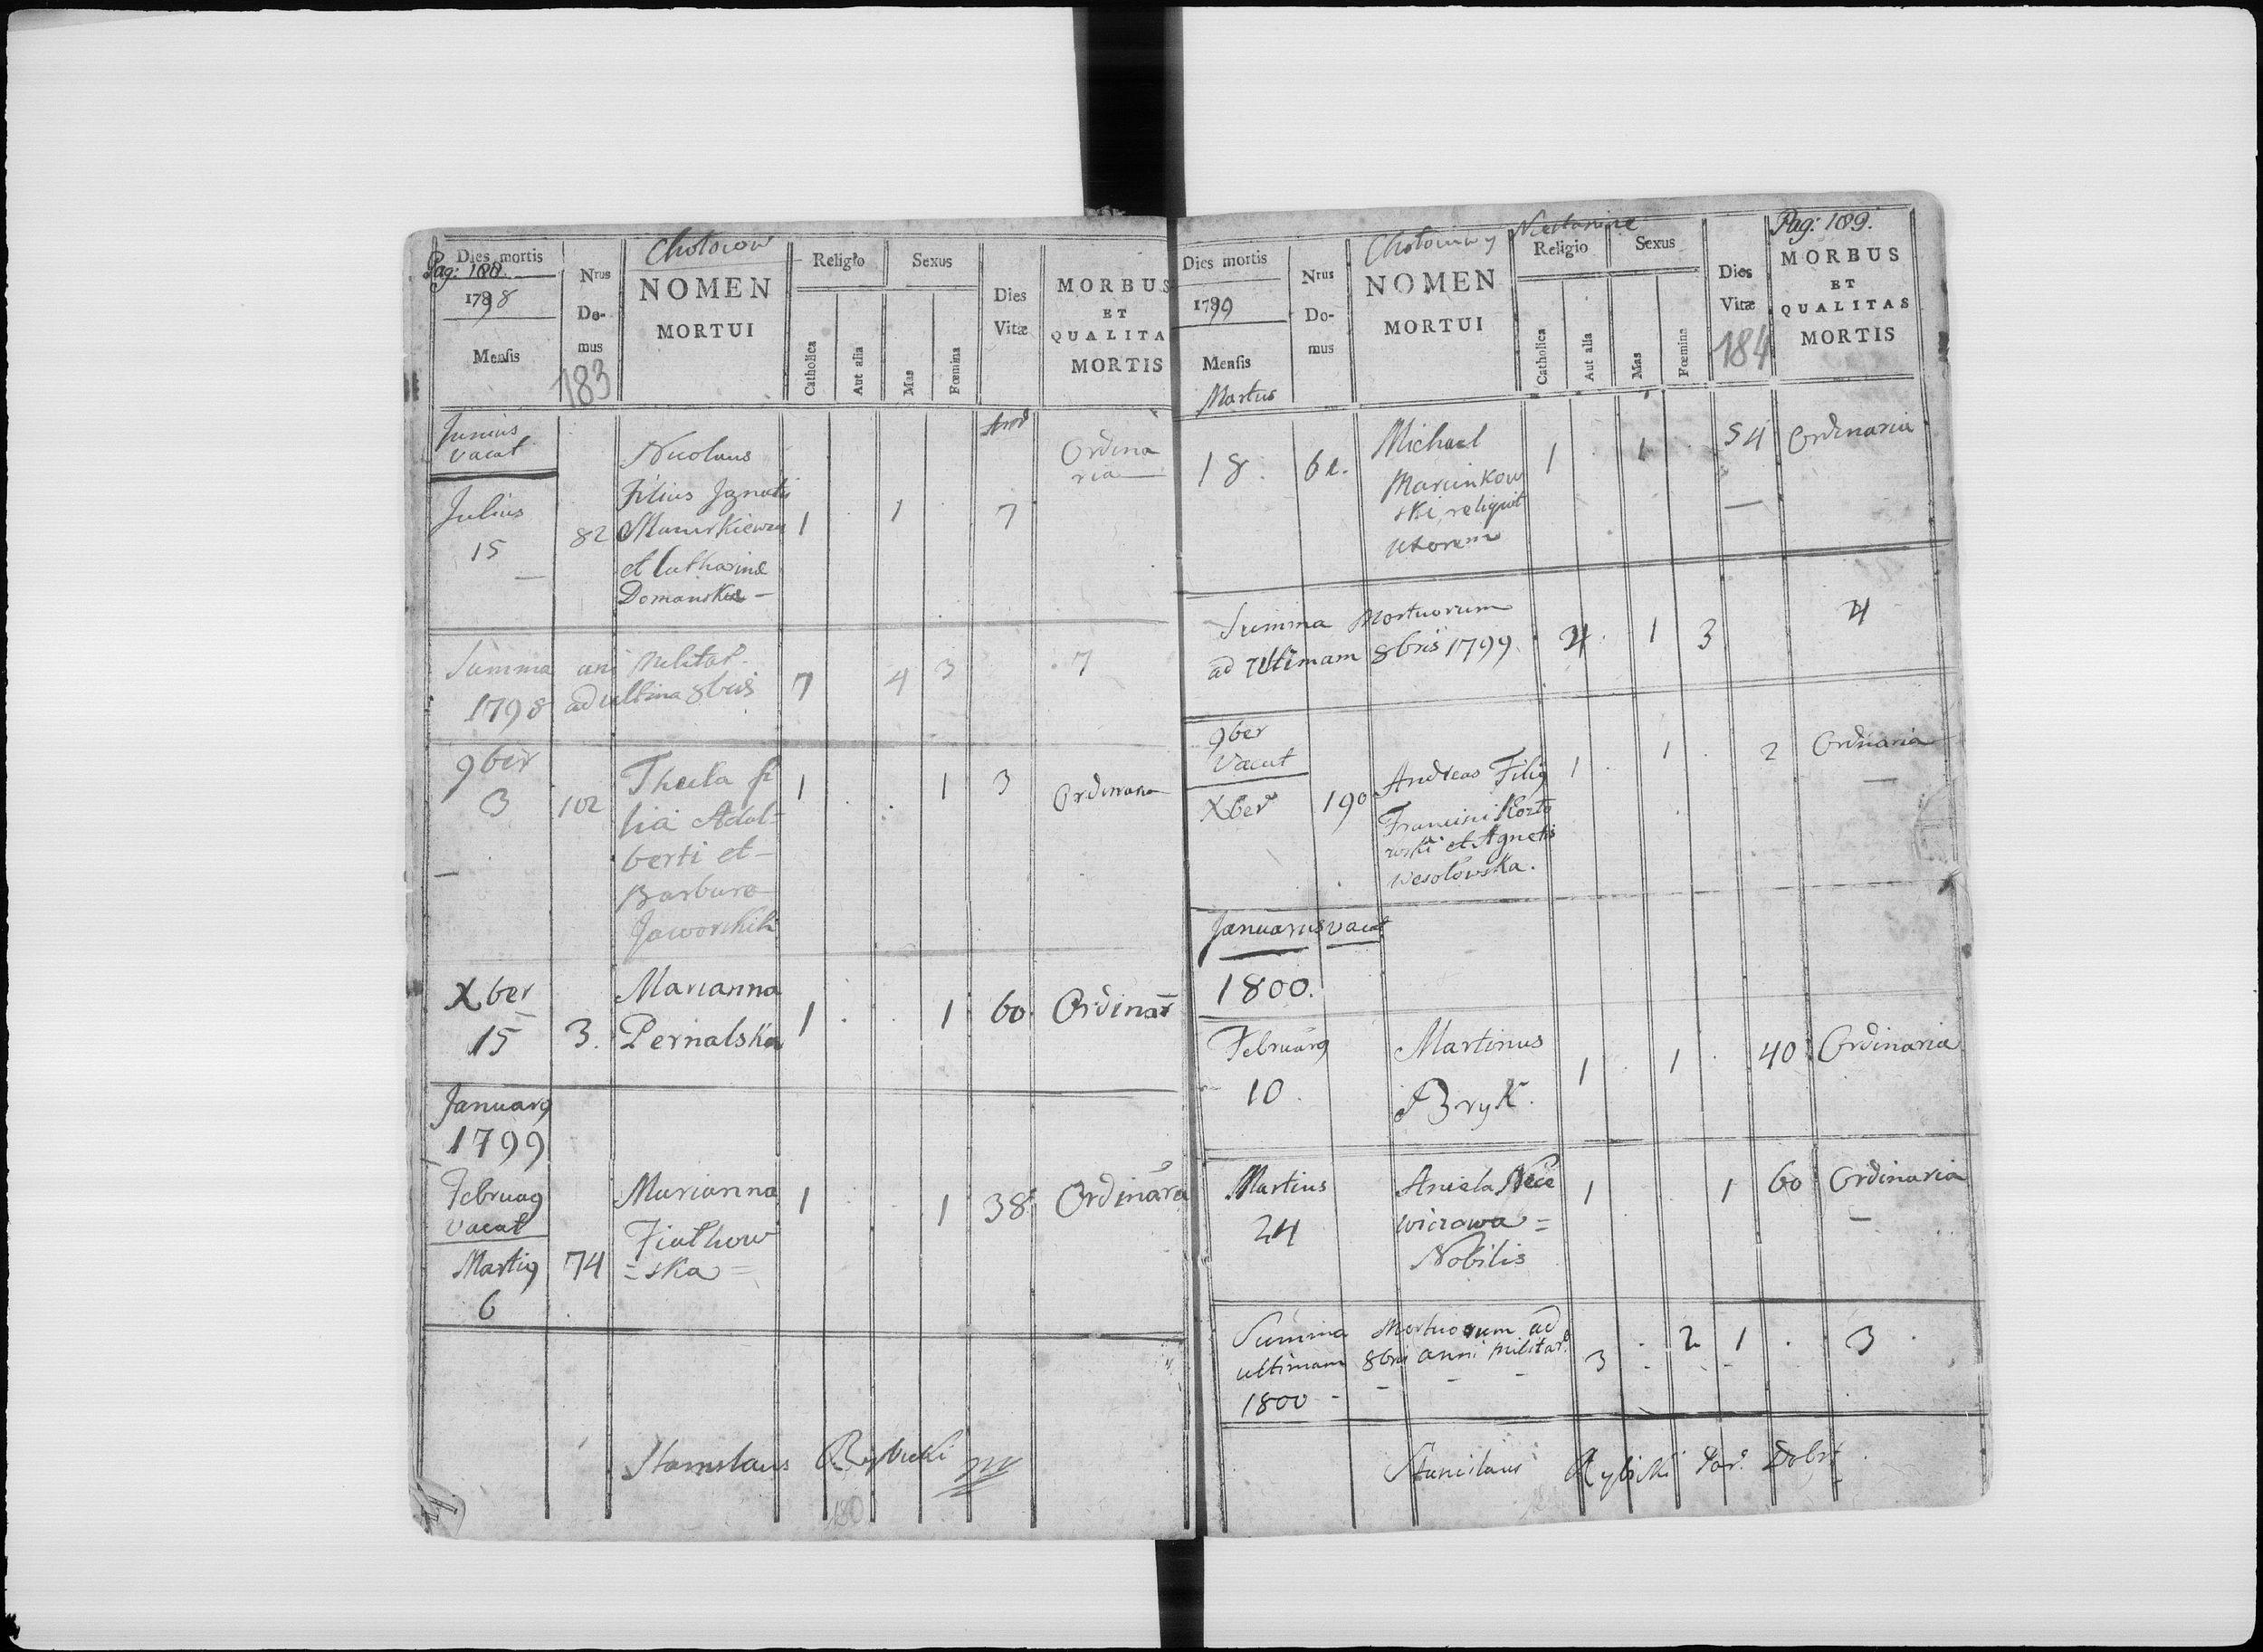 Pag: 188.
Dies mortis
1798
Mensis
Nrus
Do-
mus
183
Chotocow
NOMEN
MORTUI
Religio
Catholica
Aut alia
Sexus
Mas
Fœmina
Dies
Vitæ
MORBUS
ET
QUALITA
MORTIS
Junius
vacat
Julius
15
82
Nicolaus
Filius Ignatii
et Catharinæ
Domanska
1 . 1 . 7
Ordina
ria
Summa ani militar.
1798 ad ultima 8bris
7 4 3 7
9ber
3
102
Thecla fi
lia Adal-
berti et
Barbara
Jaworskich
1 . . 1 3
Ordinaria
Xber
15
3.
Marianna
Pernalska
1 . . 1 60
Ordinar
Januarg
1799
Februag
vacat
Martig
6
74
Marianna
Fiatkow
=ska=
1 . . 1 38
Ordinara
Stanislaus Rybicki
Pag: 189.
Dies mortis
1799
Mensis
Martus
Nrus
Do-
mus
NOMEN
MORTUI
Religio
Catholica
Aut alia
Sexus
Mas
Fœmina
Dies
Vitæ
184
MORBUS
ET
QUALITAS
MORTIS
18.
Michael
Marcinkow
ski, reliquit
uxorem
1 . 1 . 54
Ordinaria
Summa Mortuorum
ad ultimam 8bris 1799.
4 . 1 3 4
9ber
Vacat
Xber
190
Andreas Filig
Francisci
et Agnetis
Wesołowska.
1 . 1 . 2
Ordinaria
Januarius vacat
1800.
Februarg
10.
Martinus
Bryk.
1 . 1 . 40
Ordinaria
Martius
24
Aniela
wiczowa=
Nobilis
1 . . 1 60
Ordinaria
Summa Mortuorum ad
ultimam 8bris anni militar.
1800 -
3 . 2 1 . 3
Stanislaus Rybicki Par. Dobr